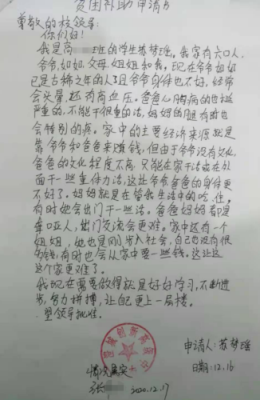 贫困补助申请书
尊敬的校领导:
你们好!
我是高 班的学生苏梦瑶,我家有六口人,
爷爷,奶奶,父母,姐姐和我。现在爷爷奶奶
已是古稀之年的人且爷爷身体也不好,经常
会头晕,还有高血压。爸爸心脏病的也挺
严重的,不能干很重的活,妈妈的腿有时也
会特别的疼。家中的主要经济来源就是
靠爷爷和爸爸来赚钱,但由于爷爷没有文化,
爸爸的文化程度不高,只能在家干活或在外
面干一些重体力活,这让爷爷爸爸的身体更
不好了。妈妈就是在管我生活中的吃,住。
有时他会出门干一些活,爸爸妈妈都是
聋哑人,出门交流会更难。家中还有一个
姐姐,她也是刚进入社会,自己也没有很
有时也会从家中要一些钱。这让
这个家更难了。
我现在需要做得就是好好学习,不断进
步,努力拼搏,让自己更上一层楼。
望领导批准。
申请人:苏梦瑶
日期:12.16
情况属实
张
2020.12.17